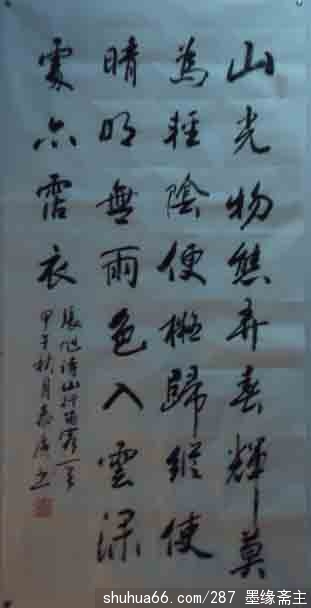 山光物態弄春輝莫
為輕陰便擬歸縱使
晴明無雨色入雲深
處亦霑衣
張旭詩山行留客一首
甲午秋月
shuhua66.com/287 墨缘斋主